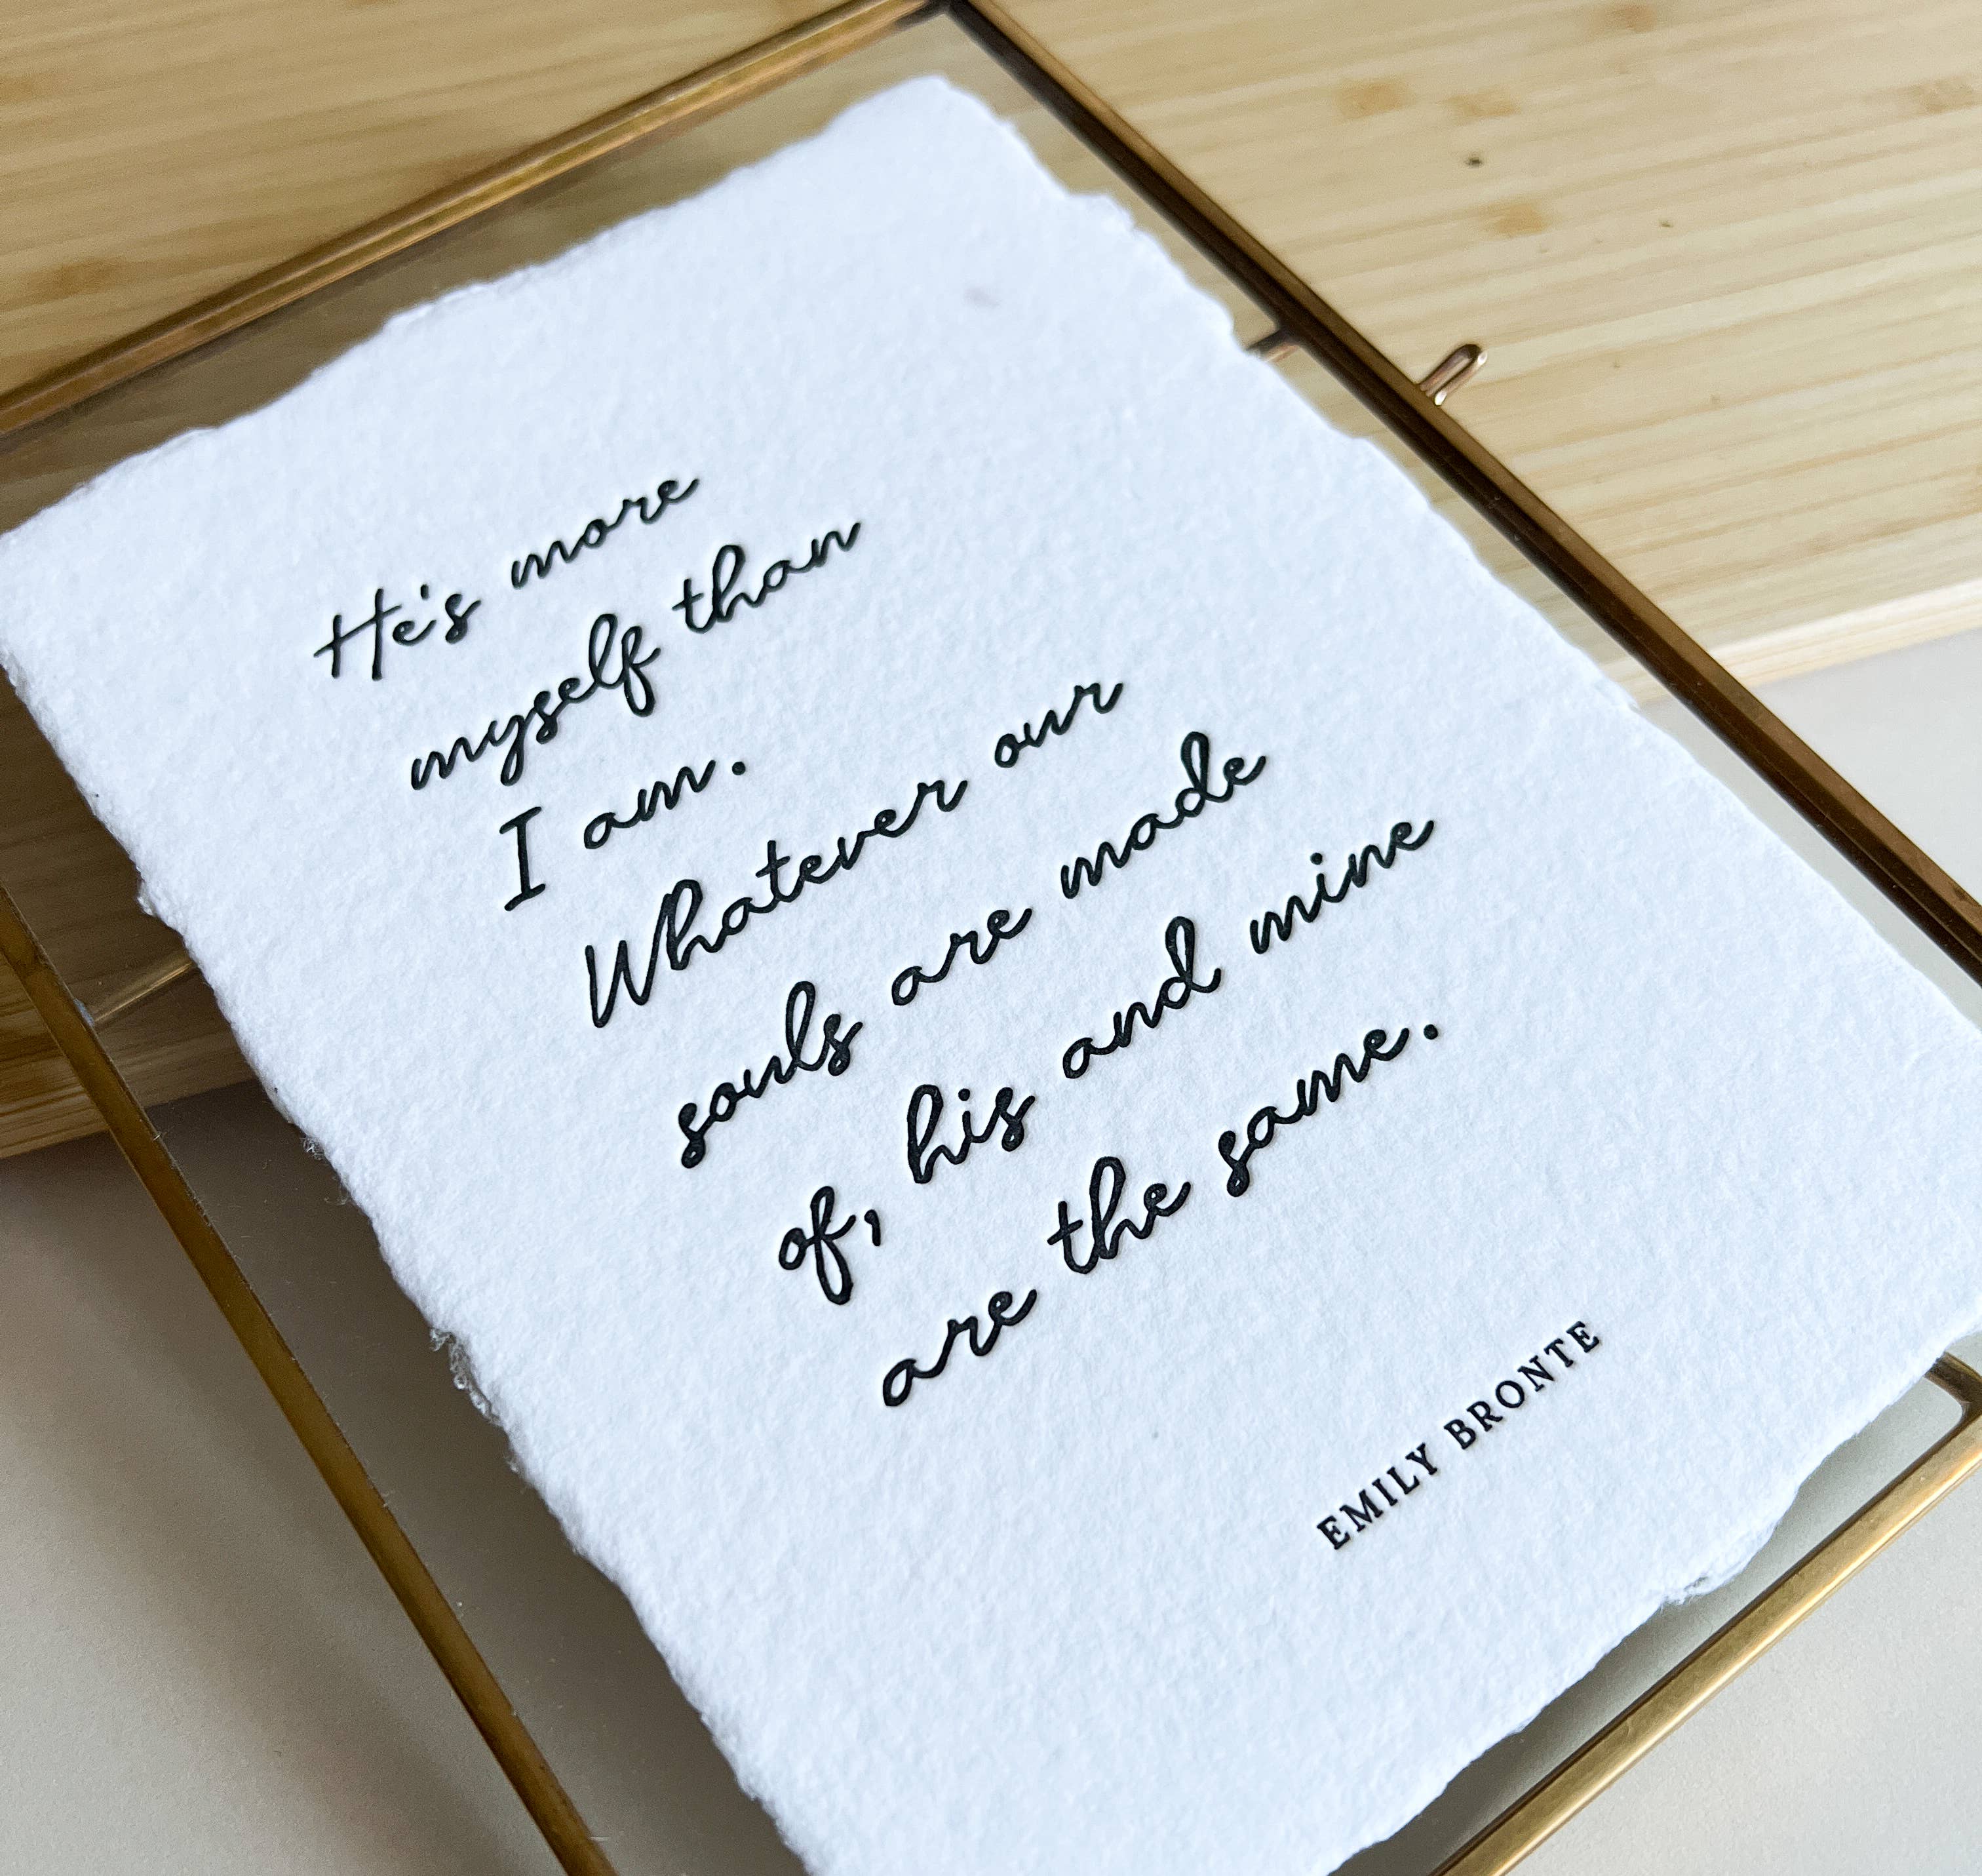 He's more
myself than
I am.
Whatever our
souls are made
of, his and mine
are the same.
EMILY BRONTE